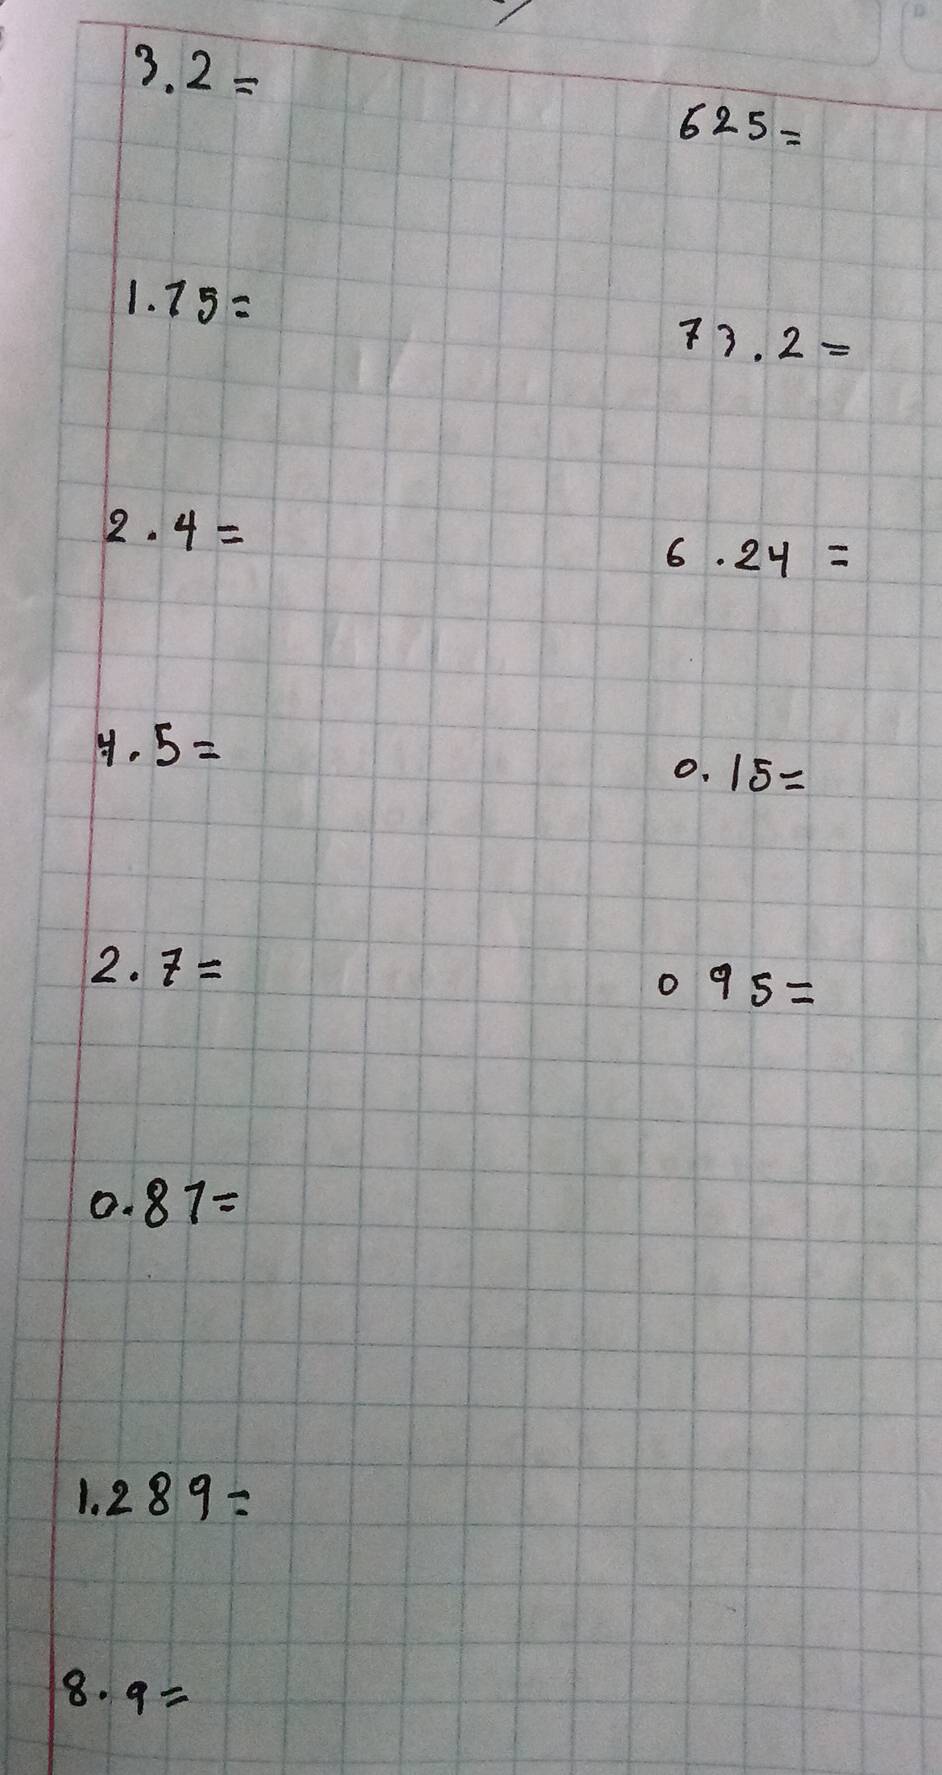 3.2=
625=
1.75=
73.2=
2.4=
6.24=
4.5=
0.15=
2.7=
0 95=
0.87=
1.289=
8.9=